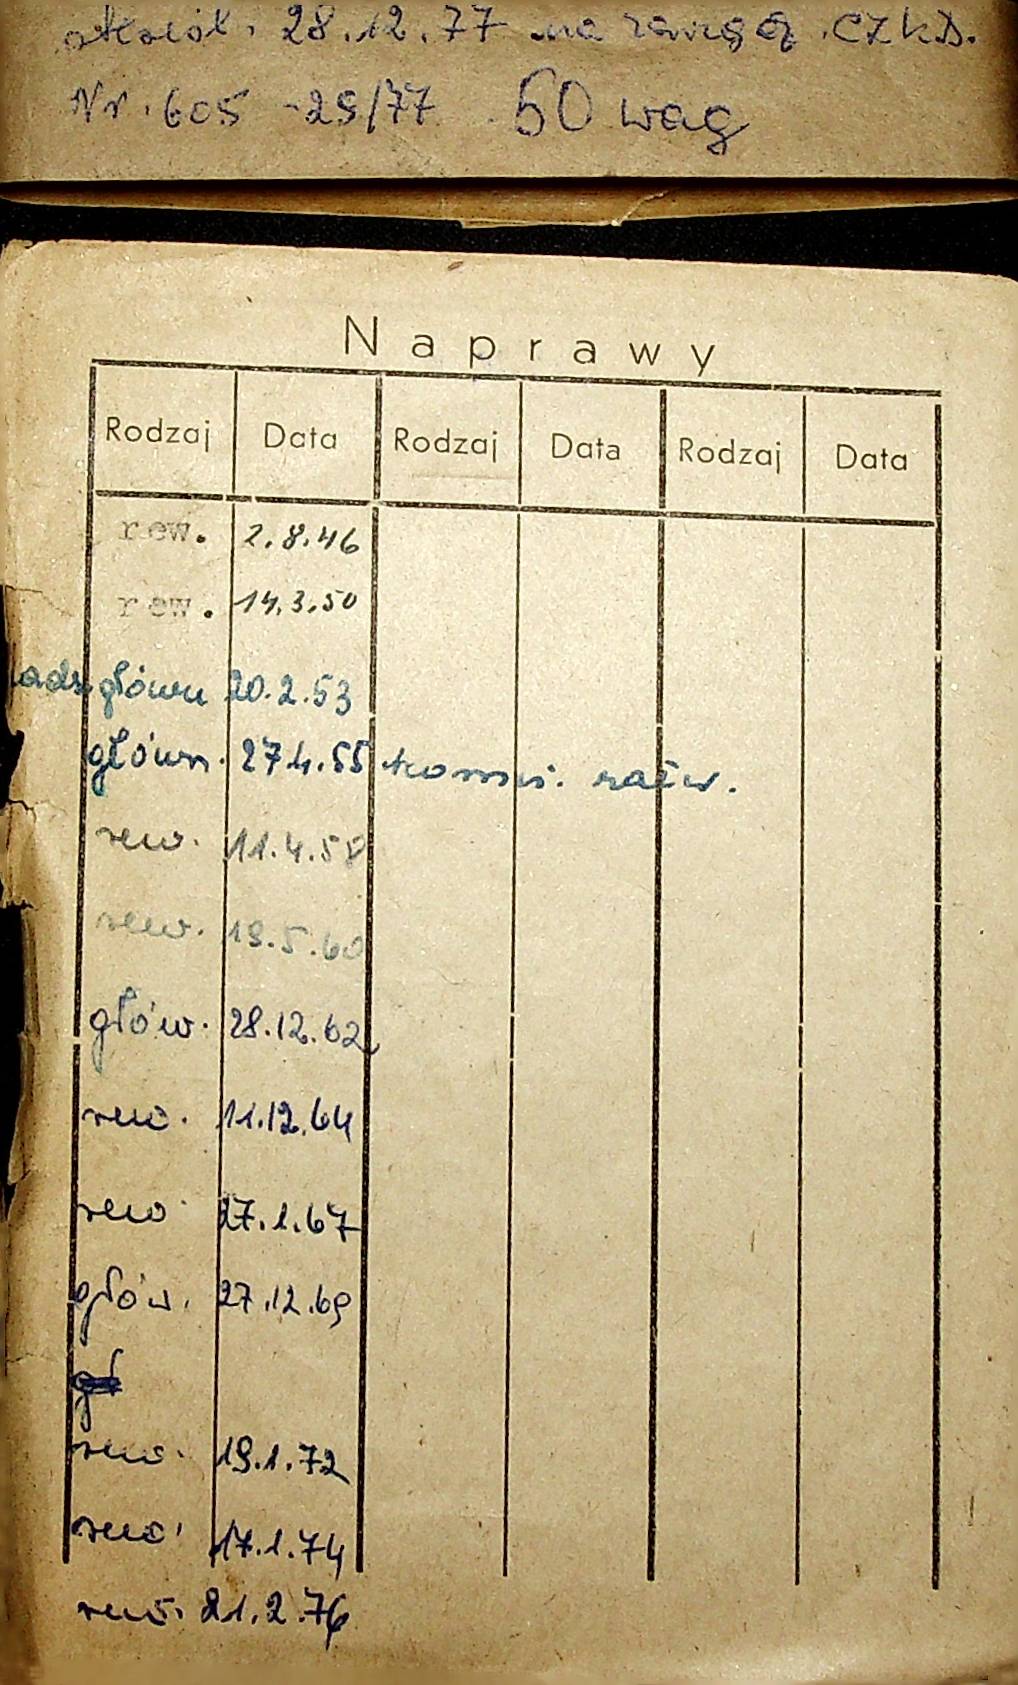 28.12.77 na CZKD.
Nr. 605 -29/77 50 wag
Naprawy
Rodzaj Data Rodzaj Data Rodzaj Data
rew. 2.8.46
rew. 14.3.50
główn 20.2.53
główn. 27.4.55
rew. 11.4.58
rew. 19.5.60
głów. 28.12.62
rew. 11.12.64
rew. 27.1.67
głów. 27.12.69
rew. 19.1.72
rew. 17.1.74
rew. 21.2.76